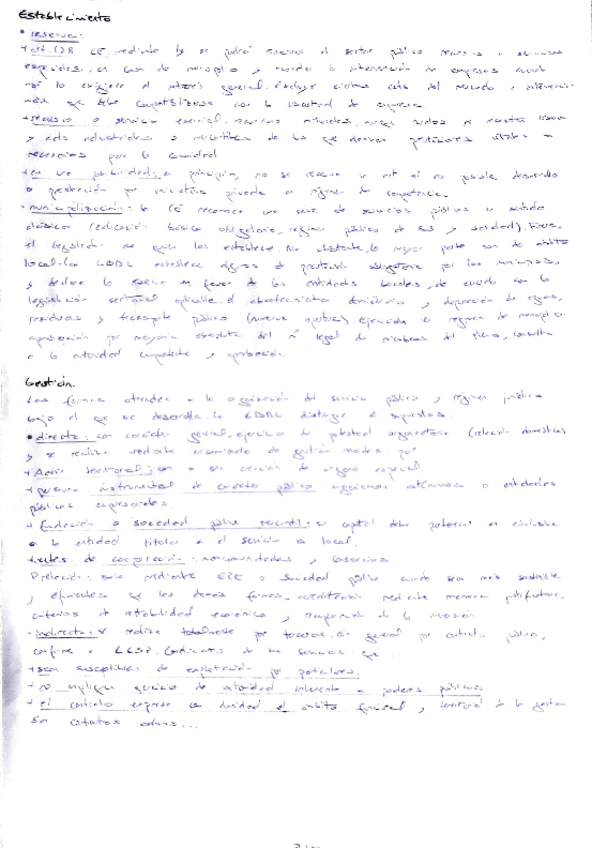 Establecimiento
• reserva:
+ art. 128 CE mediante ley se podrá reservar al sector público recursos o servicios
esenciales, en caso de monopolio y acordar la intervención de empresas cuando
así lo exigiere el interés general. Excluye ciertos del mercado e intervención
que se debe compatibilizar con la libertad de empresa.
+ recurso o servicio esencial. recursos naturales,
y acts industriales o mercantiles de las que derivan prestaciones vitales o
necesarias para la comunidad
en principio, no se reserva un act si es posible desarrollo
o prestación por iniciativa privada en régimen de competencia.
- municipalización: la CE reconoce una serie de servicios públicos en sentido
clásico (educación básica obligatoria, régimen público de SS y sanidad).
el legislador es quien los establece. No obstante, la mayor parte son de ámbito
local. La LBRL establece algunos de prestación obligatoria por los municipios,
y declara la reserva en favor de las entidades locales, de acuerdo con la
legislación sectorial aplicable. el abastecimiento domiciliario y depuración de aguas,
residuos y transporte público ejecución en régimen de monopolio
aprobación por mayoría absoluta del nº legal de miembros del Pleno, consulta
a la autoridad competente y aprobación
Gestión.
Las formas atienden a la organización del servicio público y régimen jurídico
bajo el que se desarrolla. La LBRL distingue 2 supuestos.
• directa: con carácter general, ejercicio de potestad organizatoria (relación doméstica)
y se realiza mediante de gestión por
+ Admón territorial: con o sin creación de órgano especial.
+ persona instrumental de carácter público organismos autónomos o entidades
públicas empresariales.
+ fundación o sociedad pública mercantil: su capital debe pertenecer en exclusiva
a la entidad titular si el servicio es local.
entes de cooperación: mancomunidades y consorcios
Prelación: solo mediante EPE o Sociedad pública cuando sean más sostenible
y eficientes que las demás formas, acreditación mediante memoria justificativa,
criterios de rentabilidad económica y recuperación de la inversión
- indirecta: se realiza totalmente por terceros. En general por contrato público,
conforme a LCSP. que...
+ sean susceptibles de explotación por particulares.
+ no impliquen ejercicio de autoridad inherente a poderes públicos.
+ el contrato exprese con claridad el ámbito funcional y territorial de la gestión
Son contratos